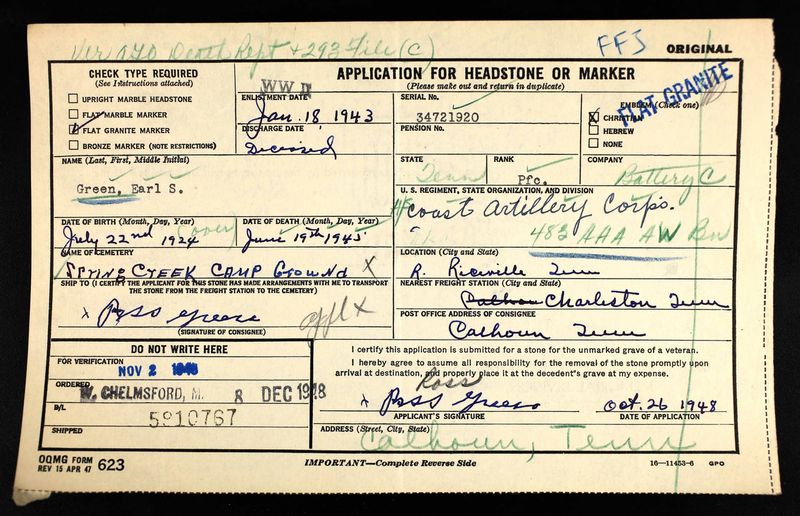 Ver AGO Death Rept + 293 File (C)
FFJ
ORIGINAL
CHECK TYPE REQUIRED
(See Instructions attached)
UPRIGHT MARBLE HEADSTONE
FLAT MARBLE MARKER
FLAT GRANITE MARKER
BRONZE MARKER (NOTE RESTRICTIONS)
WW II
APPLICATION FOR HEADSTONE OR MARKER
(Please make out and return in duplicate)
ENLISTMENT DATE
Jan. 18, 1943
DISCHARGE DATE
Deceased
SERIAL No.
34721920
PENSION No.
EMBLEM (Check one)
X CHRISTIAN
HEBREW
NONE
FLAT GRANITE
NAME (Last, First, Middle Initial)
Green, Earl S.
STATE
Tenn
RANK
Pfc.
COMPANY
Battery C
U. S. REGIMENT, STATE ORGANIZATION, AND DIVISION
Coast Artillery Corps.
483 AAA AW Bn
DATE OF BIRTH (Month, Day, Year)
(over)
July 22nd 1924
DATE OF DEATH (Month, Day, Year)
June 19th 1945
NAME OF CEMETERY
Spring Creek Camp Ground X
LOCATION (City and State)
R. Riceville Tenn
SHIP TO (I CERTIFY THE APPLICANT FOR THIS STONE HAS MADE ARRANGEMENTS WITH ME TO TRANSPORT
THE STONE FROM THE FREIGHT STATION TO THE CEMETERY)
x Ross Green
appl x
(SIGNATURE OF CONSIGNEE)
NEAREST FREIGHT STATION (City and State)
Calhoun Charleston Tenn
POST OFFICE ADDRESS OF CONSIGNEE
Calhoun Tenn
DO NOT WRITE HERE
FOR VERIFICATION
NOV 2 1948
ORDERED
W. CHELMSFORD, M. 8 DEC 1948
B/L
5910767
SHIPPED
I certify this application is submitted for a stone for the unmarked grave of a veteran.
I hereby agree to assume all responsibility for the removal of the stone promptly upon
arrival at destination, and properly place it at the decedent's grave at my expense.
Ross
x Ross Green
Oct. 26 1948
APPLICANT'S SIGNATURE
DATE OF APPLICATION
ADDRESS (Street, City, State)
Calhoun, Tenn
OQMG FORM
REV 15 APR 47 623
IMPORTANT—Complete Reverse Side
16—11453-6 GPO